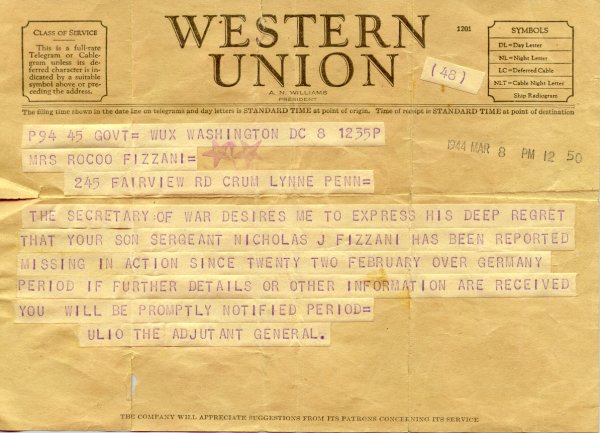 CLASS OF SERVICE
This is a full-rate
Telegram or Cable-
gram unless its de-
ferred character is in-
dicated by a suitable
symbol above or pre-
ceding the address.
WESTERN
UNION
A. N. WILLIAMS
PRESIDENT
1201
(48)
SYMBOLS
DL=Day Letter
NL=Night Letter
LC=Deferred Cable
NLT=Cable Night Letter
Ship Radiogram
The filing time shown in the date line on telegrams and day letters is STANDARD TIME at point of origin. Time of receipt is STANDARD TIME at point of destination
P94 45 GOVT= WUX WASHINGTON DC 8 1235P
1944 MAR 8 PM 12 50
MRS ROCOO FIZZANI=
245 FAIRVIEW RD CRUM LYNNE PENN=
THE SECRETARY OF WAR DESIRES ME TO EXPRESS HIS DEEP REGRET
THAT YOUR SON SERGEANT NICHOLAS J FIZZANI HAS BEEN REPORTED
MISSING IN ACTION SINCE TWENTY TWO FEBRUARY OVER GERMANY
PERIOD IF FURTHER DETAILS OR OTHER INFORMATION ARE RECEIVED
YOU WILL BE PROMPTLY NOTIFIED PERIOD=
ULIO THE ADJUTANT GENERAL.
THE COMPANY WILL APPRECIATE SUGGESTIONS FROM ITS PATRONS CONCERNING ITS SERVICE